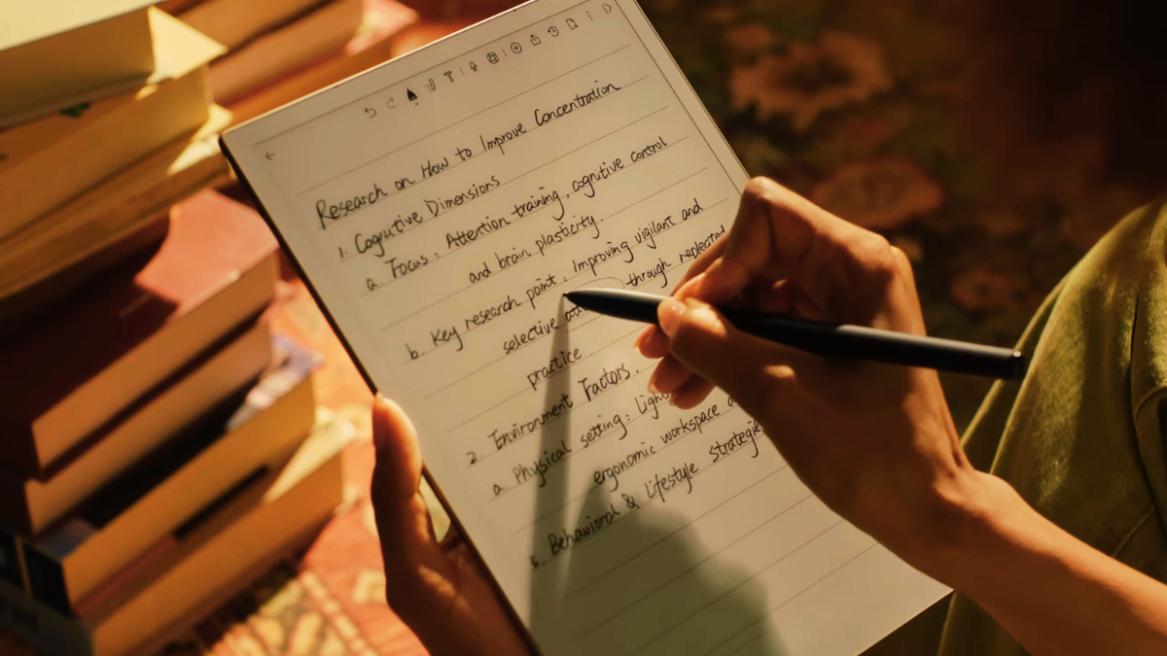 Research on How to Improve Concentration
1. Cognitive Dimensions
a. Focus. Attention training, cognitive control
and brain plasticity.
b. Key research point. Improving vigilant and
selective through repeated
practice
2. Environment Factors.
a. Physical setting:
ergonomic workspace
3. Behavioral & Lifestyle